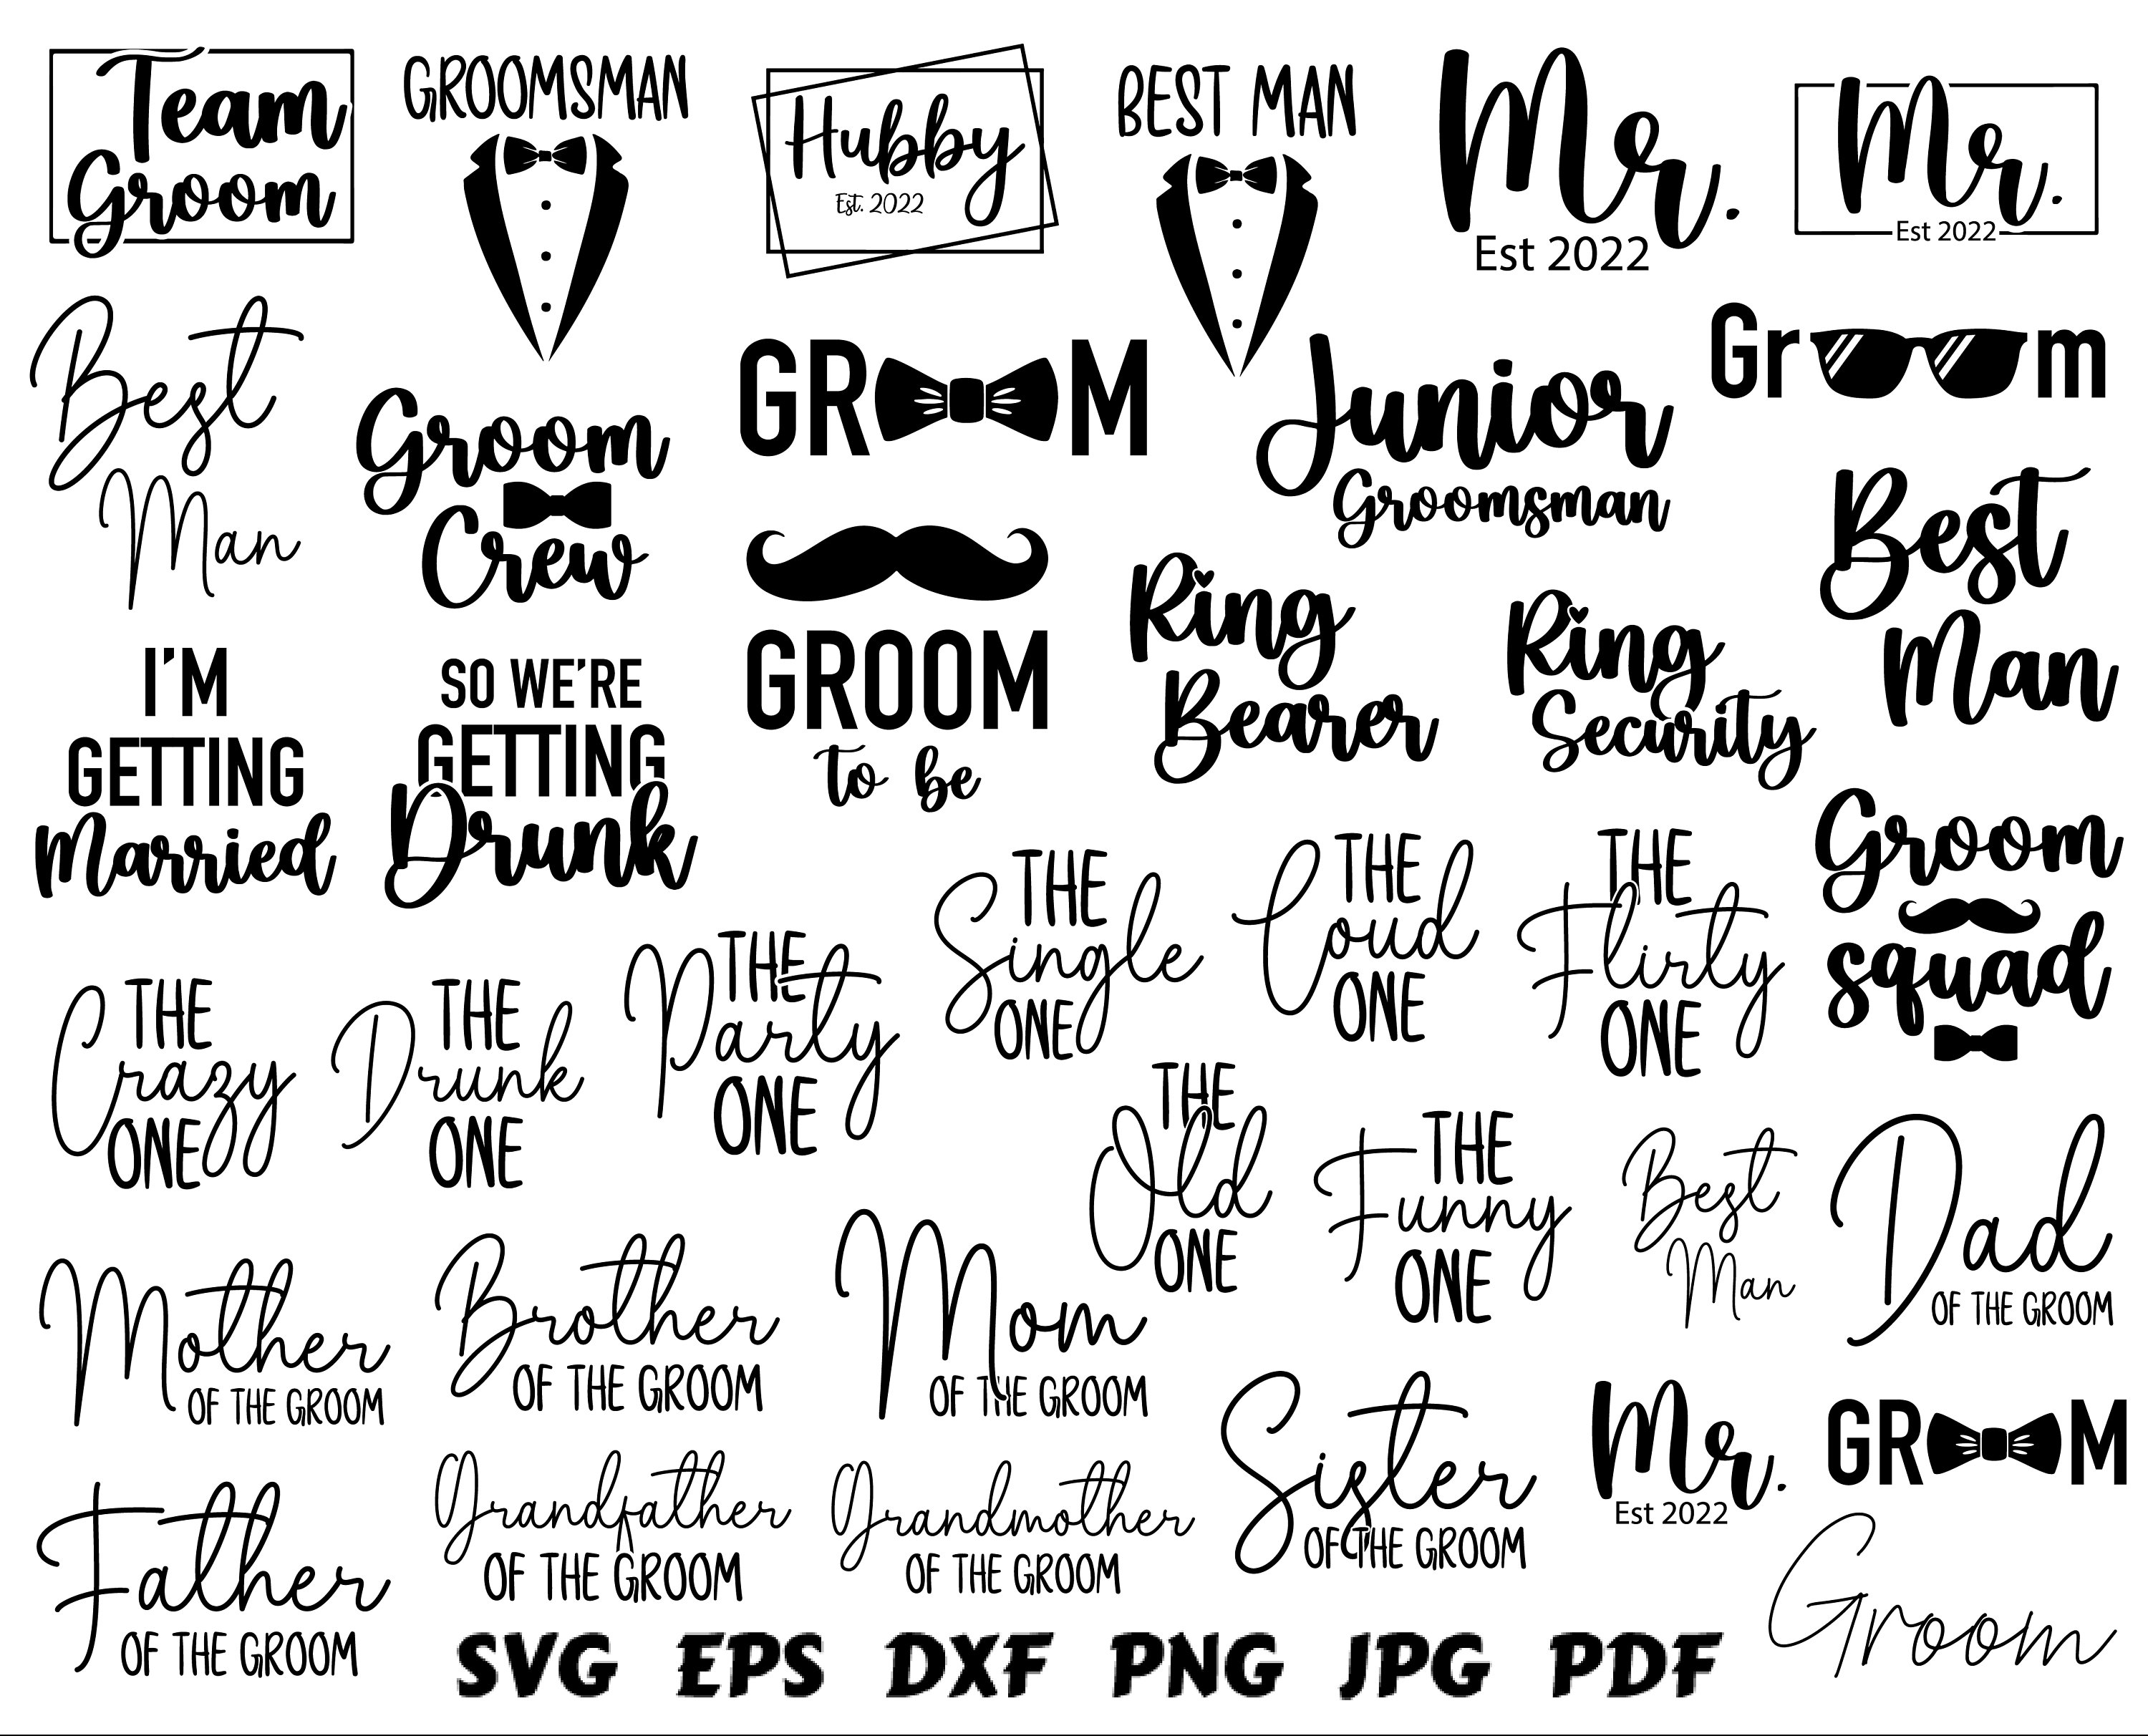 Team
Groom
GROOMSMAN
Hubby
Est. 2022
BEST MAN
Mr.
Est 2022
Mr.
Est 2022
Best
Man
Groom
Crew
GROOM
Junior
Groomsman
Groom
Best
Man
I'M
GETTING
Married
SO WE'RE
GETTING
Drunk
GROOM
to be
Ring
Bearer
Ring
Security
Groom
squad
THE
Crazy
ONE
THE
Drunk
ONE
THE
Party
ONE
THE
Single
ONE
THE
Loud
ONE
THE
Flirty
ONE
THE
Old
ONE
THE
Funny
ONE
Best
Man
Dad
OF THE GROOM
Mother
OF THE GROOM
Brother
OF THE GROOM
Mom
OF THE GROOM
Sister
OF THE GROOM
Mr.
Est 2022
GROOM
Father
OF THE GROOM
Grandfather
OF THE GROOM
Grandmother
OF THE GROOM
Groom
SVG EPS DXF PNG JPG PDF